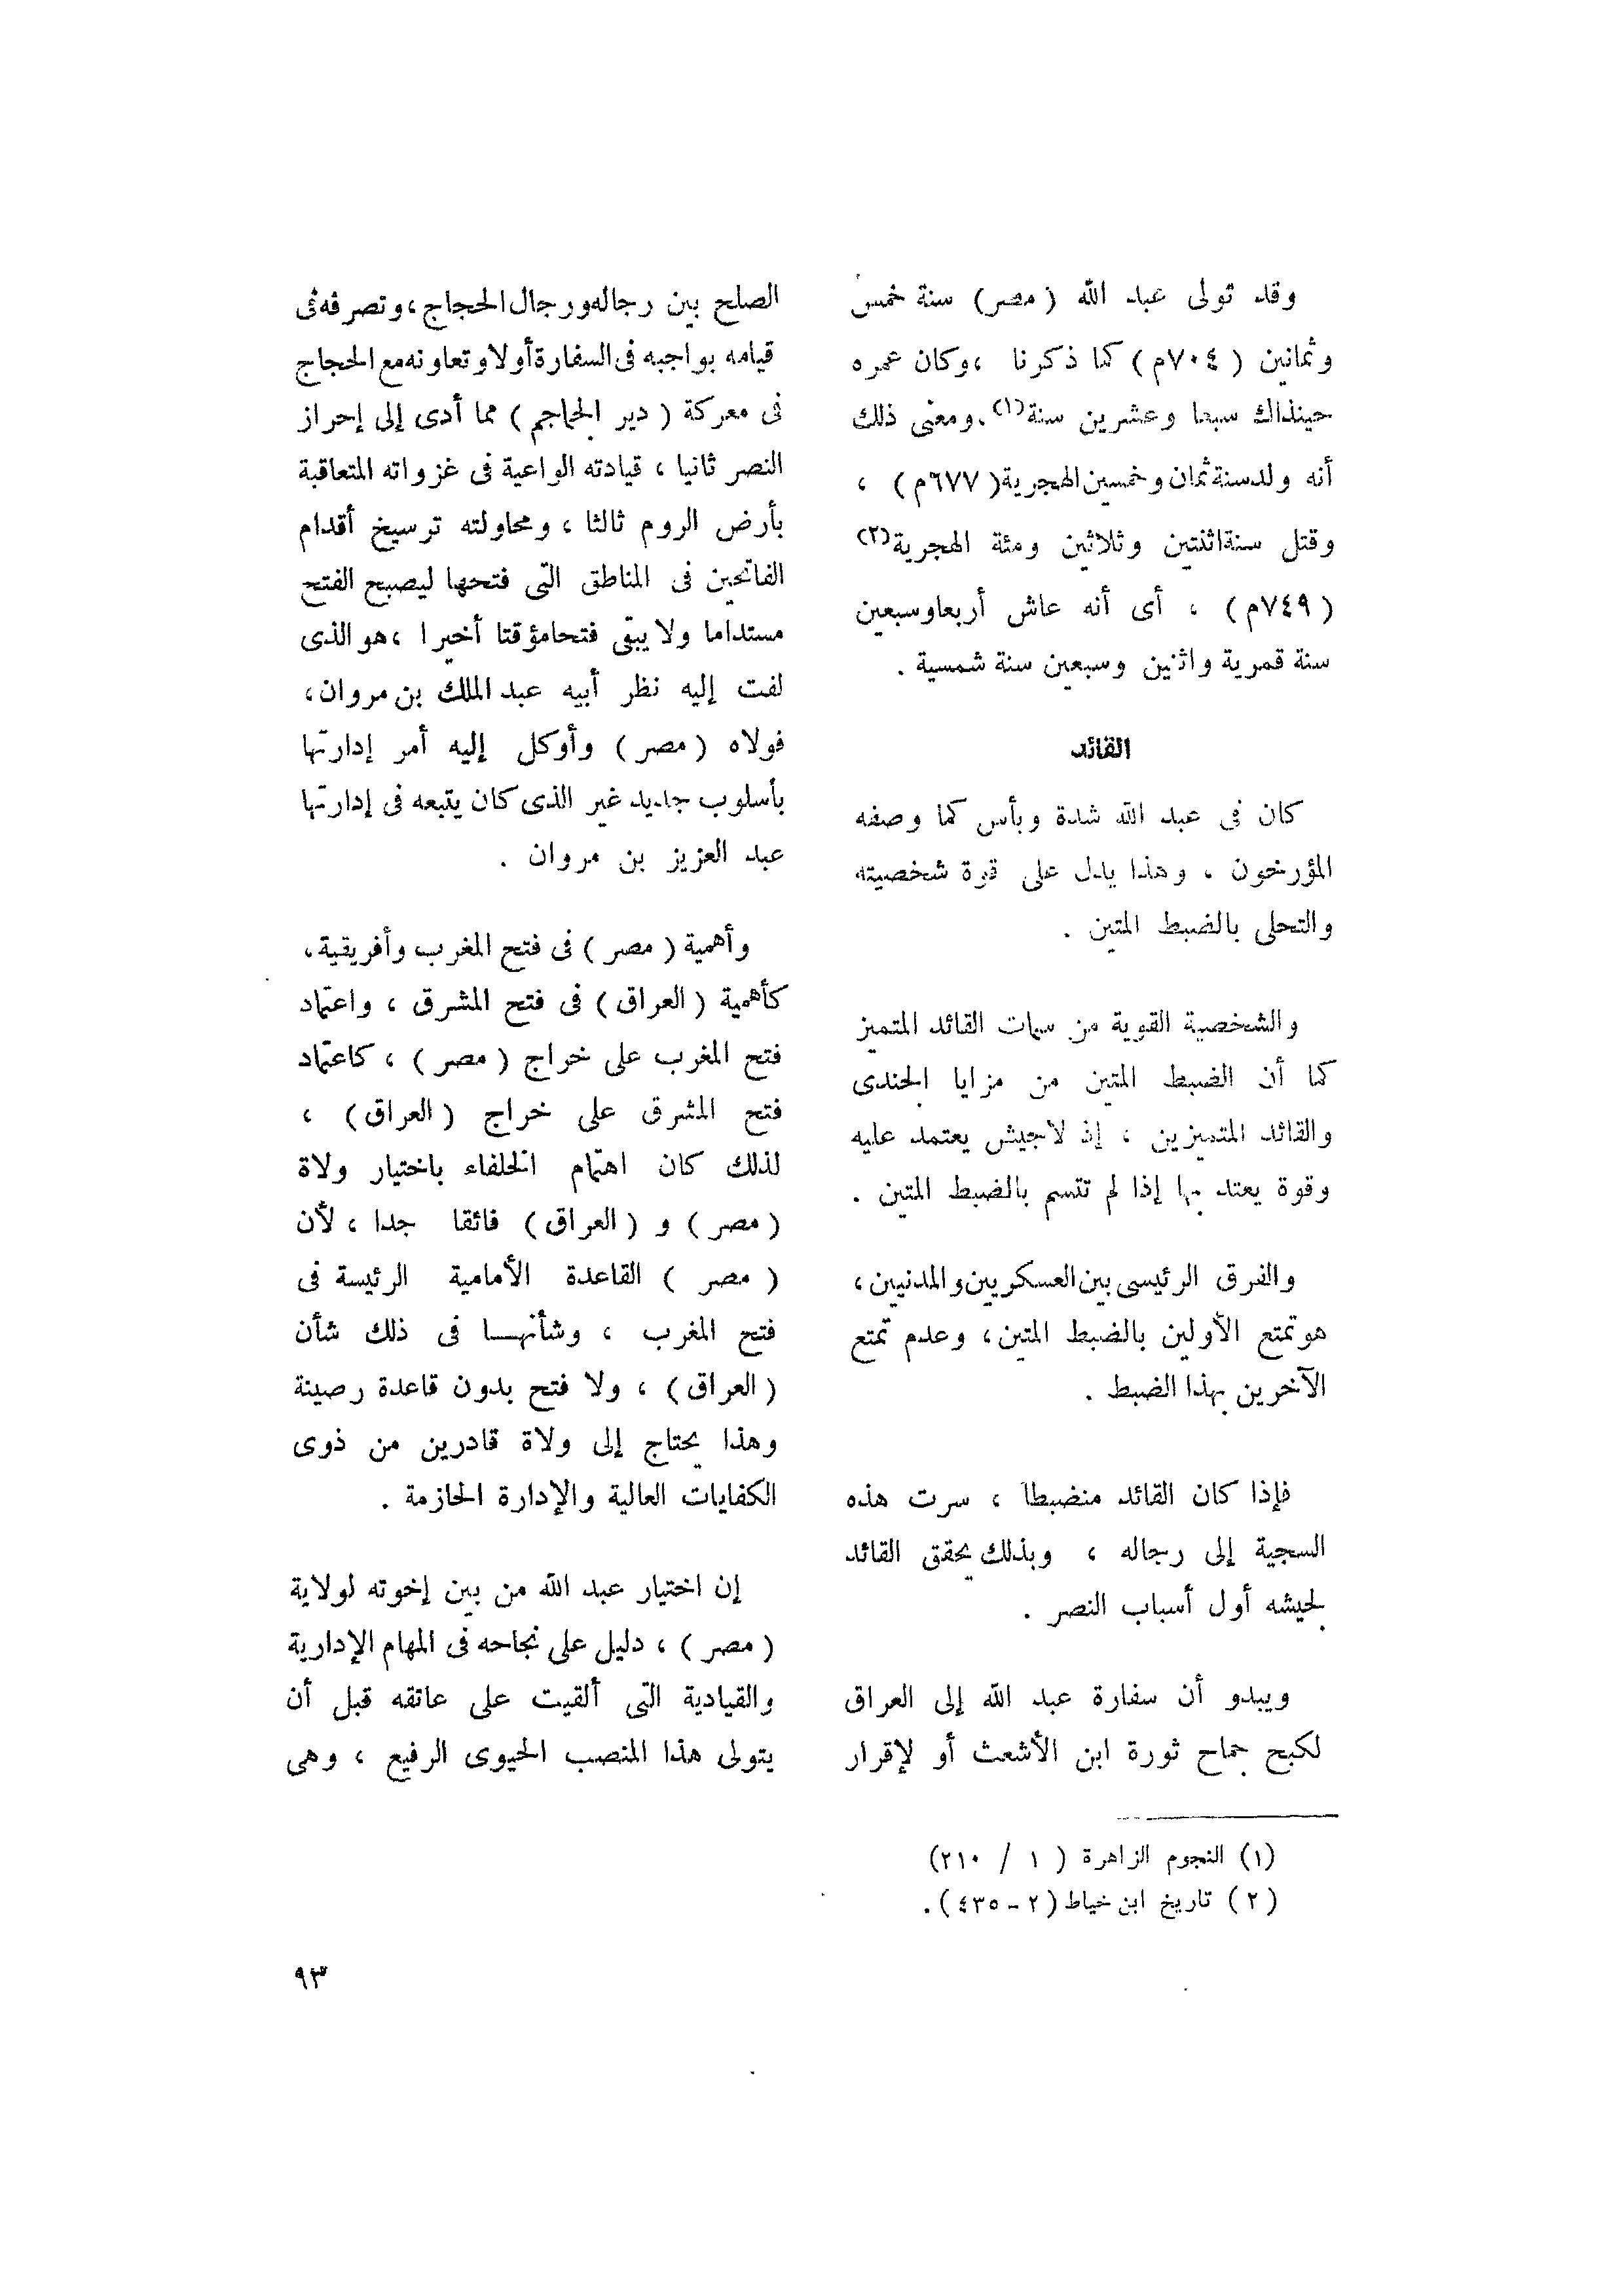 وقد تولى عبد الله ( مصر ) سنة خمس
وثمانين ( ٧٠٤م ) كما ذكرنا ، وكان عمره
حينذاك سبعا وعشرين سنة(١) ، ومعنى ذلك
أنه ولد سنة ثمان وخمسين الهجرية ( ٦٧٧م ) ،
وقتل سنة اثنتين وثلاثين ومئة الهجرية(٢)
( ٧٤٩م ) ، أى أنه عاش أربعا وسبعين
سنة قمرية واثنين وسبعين سنة شمسية .
القائد
كان فى عبد الله شدة وبأس كما وصفه
المؤرخون ، وهذا يدل على قوة شخصيته
والتحلى بالضبط المتين .
والشخصية القوية من سمات القائد المتميز
كما أن الضبط المتين من مزايا الجندى
والقائد المتميزين ، إذ لا جيش يعتمد عليه
وقوة يعتد بها إذا لم تتسم بالضبط المتين .
والفرق الرئيسى بين العسكريين والمدنيين ،
هو تمتع الأولين بالضبط المتين ، وعدم تمتع
الآخرين بهذا الضبط .
فإذا كان القائد منضبطا ، سرت هذه
السجية إلى رجاله ، وبذلك يحقق القائد
لجيشه أول أسباب النصر .
ويبدو أن سفارة عبد الله إلى العراق
لكبح جماح ثورة ابن الأشعث أو لإقرار
(١) النجوم الزاهرة ( ١ / ٢١٠)
( ٢ ) تاريخ ابن خياط ( ٢ - ٤٣٥ ) .
الصلح بين رجاله ورجال الحجاج ، وتصرفه فى
قيامه بواجبه فى السفارة أولا وتعاونه مع الحجاج
فى معركة ( دير الجماجم ) مما أدى إلى إحراز
النصر ثانيا ، قيادته الواعية فى غزواته المتعاقبة
بأرض الروم ثالثا ، ومحاولته ترسيخ أقدام
الفاتحين فى المناطق التى فتحها ليصبح الفتح
مستداما ولا يبقى فتحا مؤقتا أخيرا ، هو الذى
لفت إليه نظر أبيه عبد الملك بن مروان ،
فولاه ( مصر ) وأوكل إليه أمر إدارتها
بأسلوب جديد غير الذى كان يتبعه فى إدارتها
عبد العزيز بن مروان .
وأهمية ( مصر ) فى فتح المغرب وأفريقية ،
كأهمية ( العراق ) فى فتح المشرق ، واعتماد
فتح المغرب على خراج ( مصر ) ، كاعتماد
فتح المشرق على خراج ( العراق ) ،
لذلك كان اهتمام الخلفاء باختيار ولاة
( مصر ) و ( العراق ) فائقا جدا ، لأن
( مصر ) القاعدة الأمامية الرئيسة فى
فتح المغرب ، وشأنهـا فى ذلك شأن
( العراق ) ، ولا فتح بدون قاعدة رصينة
وهذا يحتاج إلى ولاة قادرين من ذوى
الكفايات العالية والإدارة الحازمة .
إن اختيار عبد الله من بين إخوته لولاية
( مصر ) ، دليل على نجاحه فى المهام الإدارية
والقيادية التى ألقيت على عاتقه قبل أن
يتولى هذا المنصب الحيوى الرفيع ، وهى
٩٣